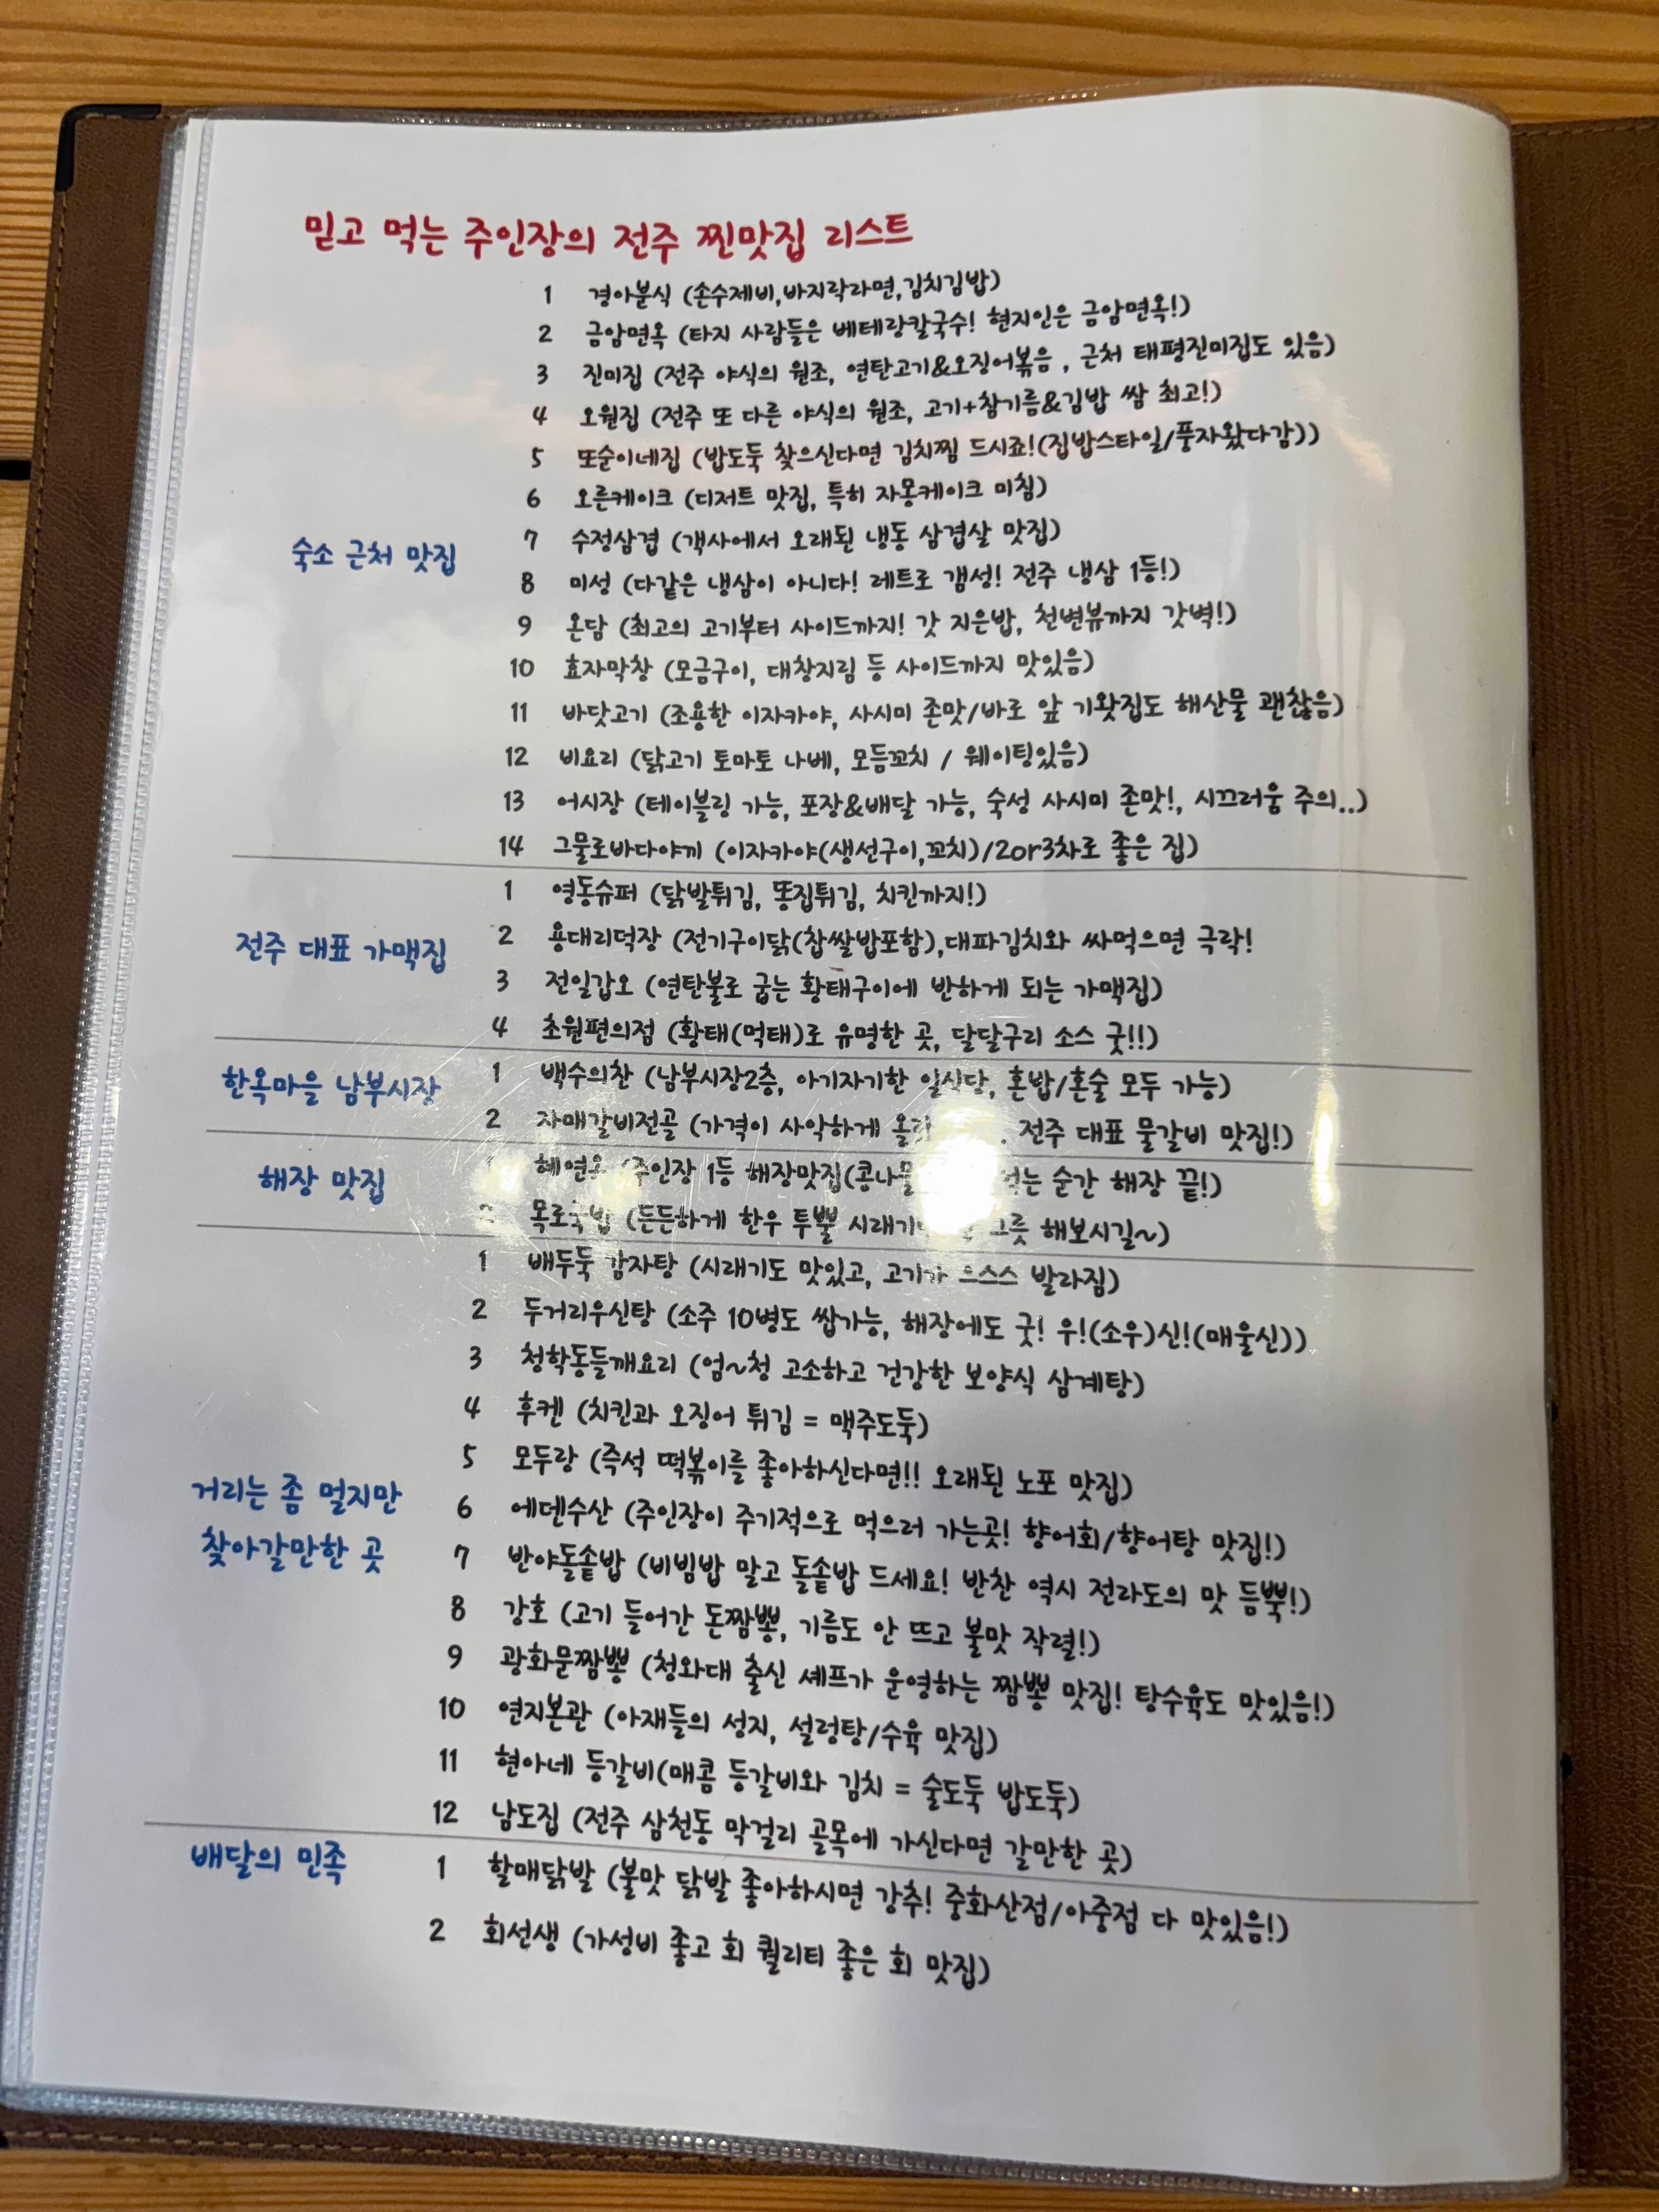 믿고 먹는 주인장의 전주 찐맛집 리스트
숙소 근처 맛집
1 경아분식 (손수제비,바지락라면,김치김밥)
2 금암면옥 (타지 사람들은 베테랑칼국수! 현지인은 금암면옥!)
3 진미집 (전주 야식의 원조, 연탄고기&오징어볶음 , 근처 태평진미집도 있음)
4 오원집 (전주 또 다른 야식의 원조, 고기+참기름&김밥 쌈 최고!)
5 또순이네집 (밥도둑 찾으신다면 김치찜 드시죠!(집밥스타일/풍자왔다감))
6 오른케이크 (디저트 맛집, 특히 자몽케이크 미침)
7 수정삼겹 (객사에서 오래된 냉동 삼겹살 맛집)
8 미성 (다같은 냉삼이 아니다! 레트로 갬성! 전주 냉삼 1등!)
9 온담 (최고의 고기부터 사이드까지! 갓 지은밥, 천변뷰까지 갓벽!)
10 효자막창 (모금구이, 대창지림 등 사이드까지 맛있음)
11 바닷고기 (조용한 이자카야, 사시미 존맛/바로 앞 기왓집도 해산물 괜찮음)
12 비요리 (닭고기 토마토 나베, 모듬꼬치 / 웨이팅있음)
13 어시장 (테이블링 가능, 포장&배달 가능, 숙성 사시미 존맛!, 시끄러움 주의..)
14 그물로바다야끼 (이자카야(생선구이,꼬치)/2or3차로 좋은 집)
전주 대표 가맥집
1 영동슈퍼 (닭발튀김, 똥집튀김, 치킨까지!)
2 용대리덕장 (전기구이닭(찹쌀밥포함),대파김치와 싸먹으면 극락!
3 전일갑오 (연탄불로 굽는 황태구이에 반하게 되는 가맥집)
4 초원편의점 (황태(먹태)로 유명한 곳, 달달구리 소스 굿!!)
한옥마을 남부시장
1 백수의찬 (남부시장2층, 아기자기한 일식당, 혼밥/혼술 모두 가능)
2 자매갈비전골 (가격이 사악하게 전주 대표 물갈비 맛집!)
해장 맛집
(주인장 1등 해장맛집(콩나물 순간 해장 끝!)
2 목로국밥 (든든하게 한우 투뿔 해보시길~)
거리는 좀 멀지만
찾아갈만한 곳
1 배두둑 감자탕 (시래기도 맛있고, 고기가 으스스 발라짐)
2 두거리우신탕 (소주 10병도 쌉가능, 해장에도 굿! 우!(소우)신!(매울신))
3 청학동들깨요리 (엄~청 고소하고 건강한 보양식 삼계탕)
4 후켄 (치킨과 오징어 튀김 = 맥주도둑)
5 모두랑 (즉석 떡볶이를 좋아하신다면!! 오래된 노포 맛집)
6 에덴수산 (주인장이 주기적으로 먹으러 가는곳! 향어회/향어탕 맛집!)
7 반야돌솥밥 (비빔밥 말고 돌솥밥 드세요! 반찬 역시 전라도의 맛 듬뿍!)
8 강호 (고기 들어간 돈짬뽕, 기름도 안 뜨고 불맛 작렬!)
9 광화문짬뽕 (청와대 출신 셰프가 운영하는 짬뽕 맛집! 탕수육도 맛있음!)
10 연지본관 (아재들의 성지, 설렁탕/수육 맛집)
11 현아네 등갈비(매콤 등갈비와 김치 = 술도둑 밥도둑)
12 남도집 (전주 삼천동 막걸리 골목에 가신다면 갈만한 곳)
배달의 민족
1 할매닭발 (불맛 닭발 좋아하시면 강추! 중화산점/아중점 다 맛있음!)
2 회선생 (가성비 좋고 회 퀄리티 좋은 회 맛집)